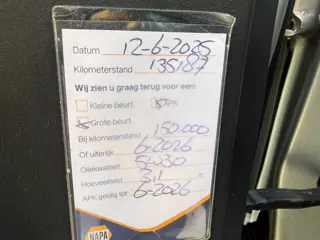 Datum 12-6-2025
Kilometerstand 135187
Wij zien u graag terug voor een:
Kleine beurt APK
Grote beurt
Bij kilometerstand: 150.000
Of uiterlijk 6-2026
Oliekwaliteit 5W30
Hoeveelheid 3,1
APK geldig tot 6-2026
NAPA